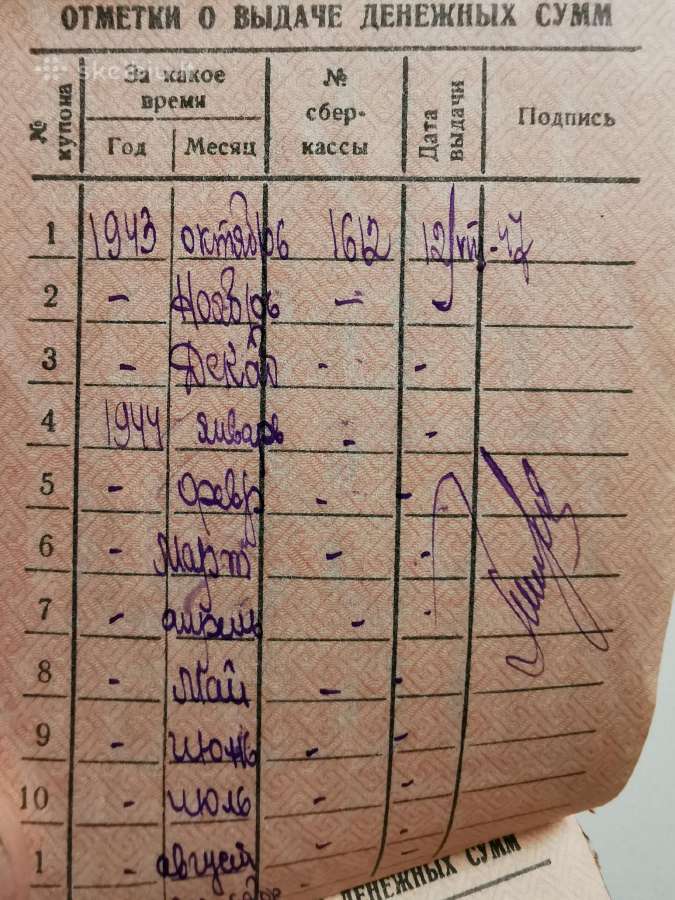 ОТМЕТКИ О ВЫДАЧЕ ДЕНЕЖНЫХ СУММ
skelbiu.lt
№ купона | За какое время | № сбер-кассы | Дата выдачи | Подпись
Год | Месяц
1 1943 октябрь 1612 12/VII-47
2 - Ноябрь - -
3 - Декаб - -
4 1944 январь - -
5 - февр - -
6 - Март - -
7 - апрель - -
8 - Май - -
9 - июнь - -
10 - июль - -
1 - август - -
ДЕНЕЖНЫХ СУММ